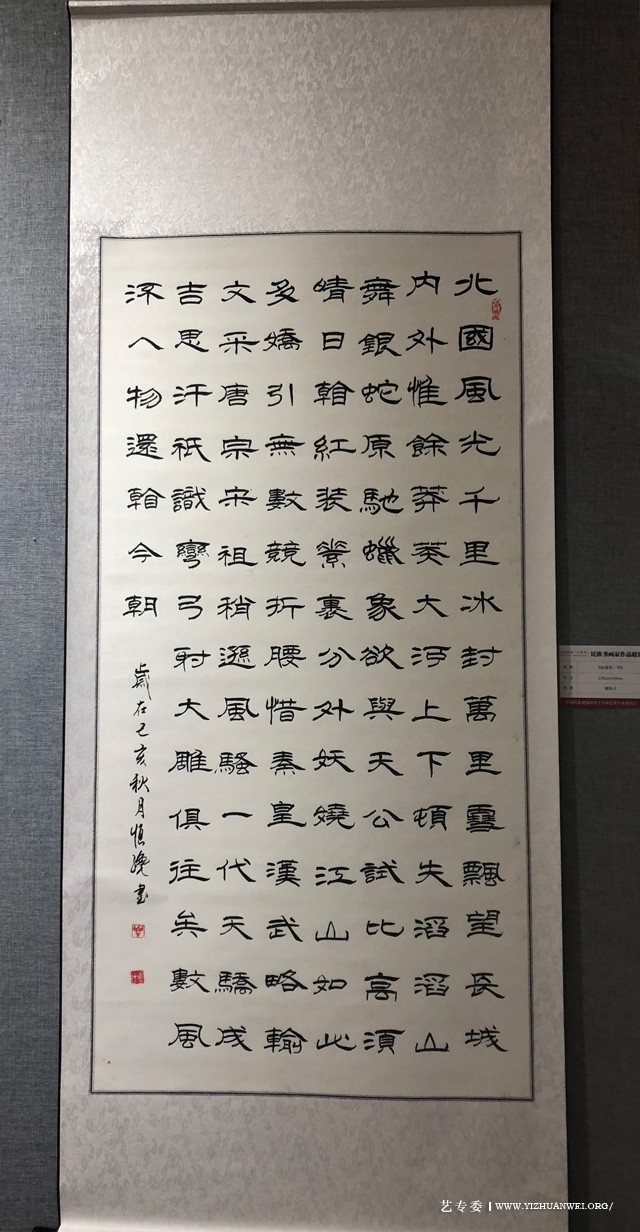 北國風光千里冰封萬里雪飄望長城
内外惟餘莽莽大河上下頓失滔滔山
舞銀蛇原馳蠟象欲與天公試比高須
晴日看紅装裹分外妖嬈江山如此
多嬌引無數競折腰惜秦皇漢武略輸
文采唐宗宋祖稍遜風騷一代天驕成
吉思汗祇識彎弓射大雕俱往矣數風
流人物還看今朝
歲在己亥秋月書
民族书画家作品
艺专委 | WWW.YIZHUANWEI.ORG/